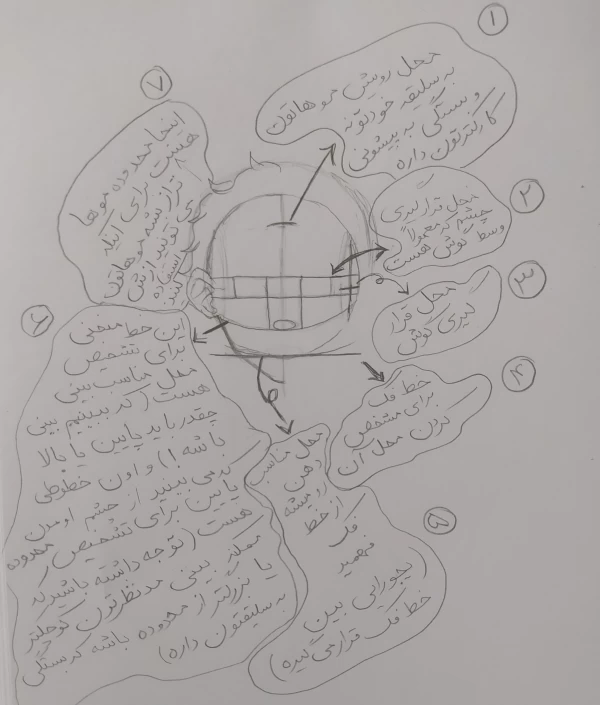 ۱
محل رویش موهاتون
به سلیقه خودتونه
و بستگی به پیشونی
کارکترتون داره
۲
محل قرارگیری
چشم که معمولاً
وسط گوش هست
۳
محل قرار
گیری گوش
۴
خط فک
برای مشخص
کردن محل آن
۵
محل مناسب
دهن
رو میشه
از خط
فک
فهمید
(یجورایی بین
خط فک قرار می‌گیره)
۶
این خط منحنی
برای تشخیص
محل مناسب بینی
هست (که ببینیم بینی
چقدر باید پایین یا بالا
باشه!) و اون خطوطی
که می‌بینید از چشم اومدن
پایین برای تشخیص محدوده
هست (توجه داشته باشید که
ممکنه بینی مدنظرتون کوچکتر
یا بزرگتر از محدوده باشه که بستگی
به سلیقتون داره)
۷
اینجا محدوده موها
هست برای اینکه
تراز بشه موهاتون
می‌تونید ازش
استفاده
کنید